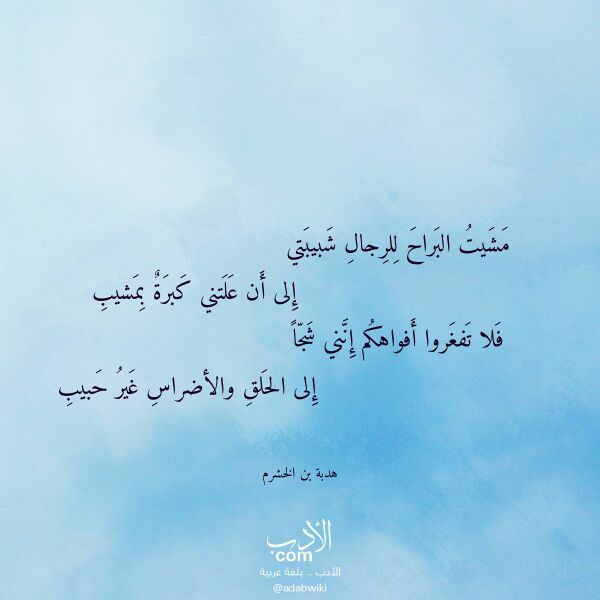 مَشَيتُ البَراحَ لِلرِجالِ شَبيبَتي
إِلى أَن عَلَتني كَبرَةٌ بِمَشيبِ
فَلا تَفغَروا أَفواهكُم إِنَّني شَجّاً
إِلى الحَلقِ والأضراسِ غَيرُ حَبيبِ
هدبة بن الخشرم
الأدب
com
الأدب .. بلغة عربية
@adabwiki